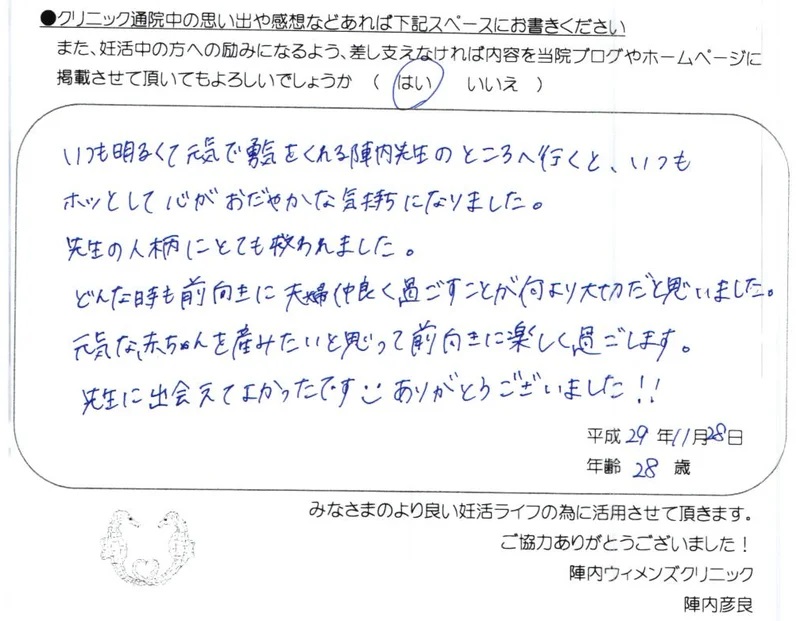 ●クリニック通院中の思い出や感想などあれば下記スペースにお書きください
また、妊活中の方への励みになるよう、差し支えなければ内容を当院ブログやホームページに
掲載させて頂いてもよろしいでしょうか （ はい いいえ ）
いつも明るくて元気で勇気をくれる陣内先生のところへ行くと、いつも
ホッとして心がおだやかな気持ちになりました。
先生の人柄にとても救われました。
どんな時も前向きに夫婦仲良く過ごすことが何より大切だと思いました。
元気な赤ちゃんを産みたいと思って前向きに楽しく過ごします。
先生に出会えてよかったです ありがとうございました!!
平成 29 年 11月 28日
年齢 28 歳
みなさまのより良い妊活ライフの為に活用させて頂きます。
ご協力ありがとうございました！
陣内ウィメンズクリニック
陣内彦良